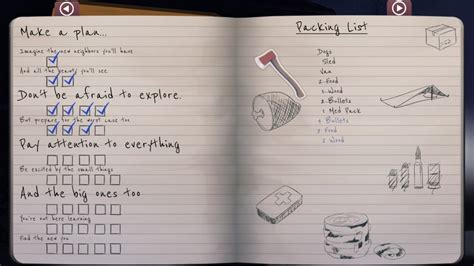 Make a plan...
Imagine the new neighbors you'll have
And all the beauty you'll see
Don't be afraid to explore.
But prepare for the worst case too
Pay attention to everything
Be excited by the small things
And the big ones too
You're not here learning
Find the new you
Packing List
Dogs
Sled
Van
2 Food
2 Wood
2 Bullets
1 Med Pack
4 Bullets
2 Food
2 Wood